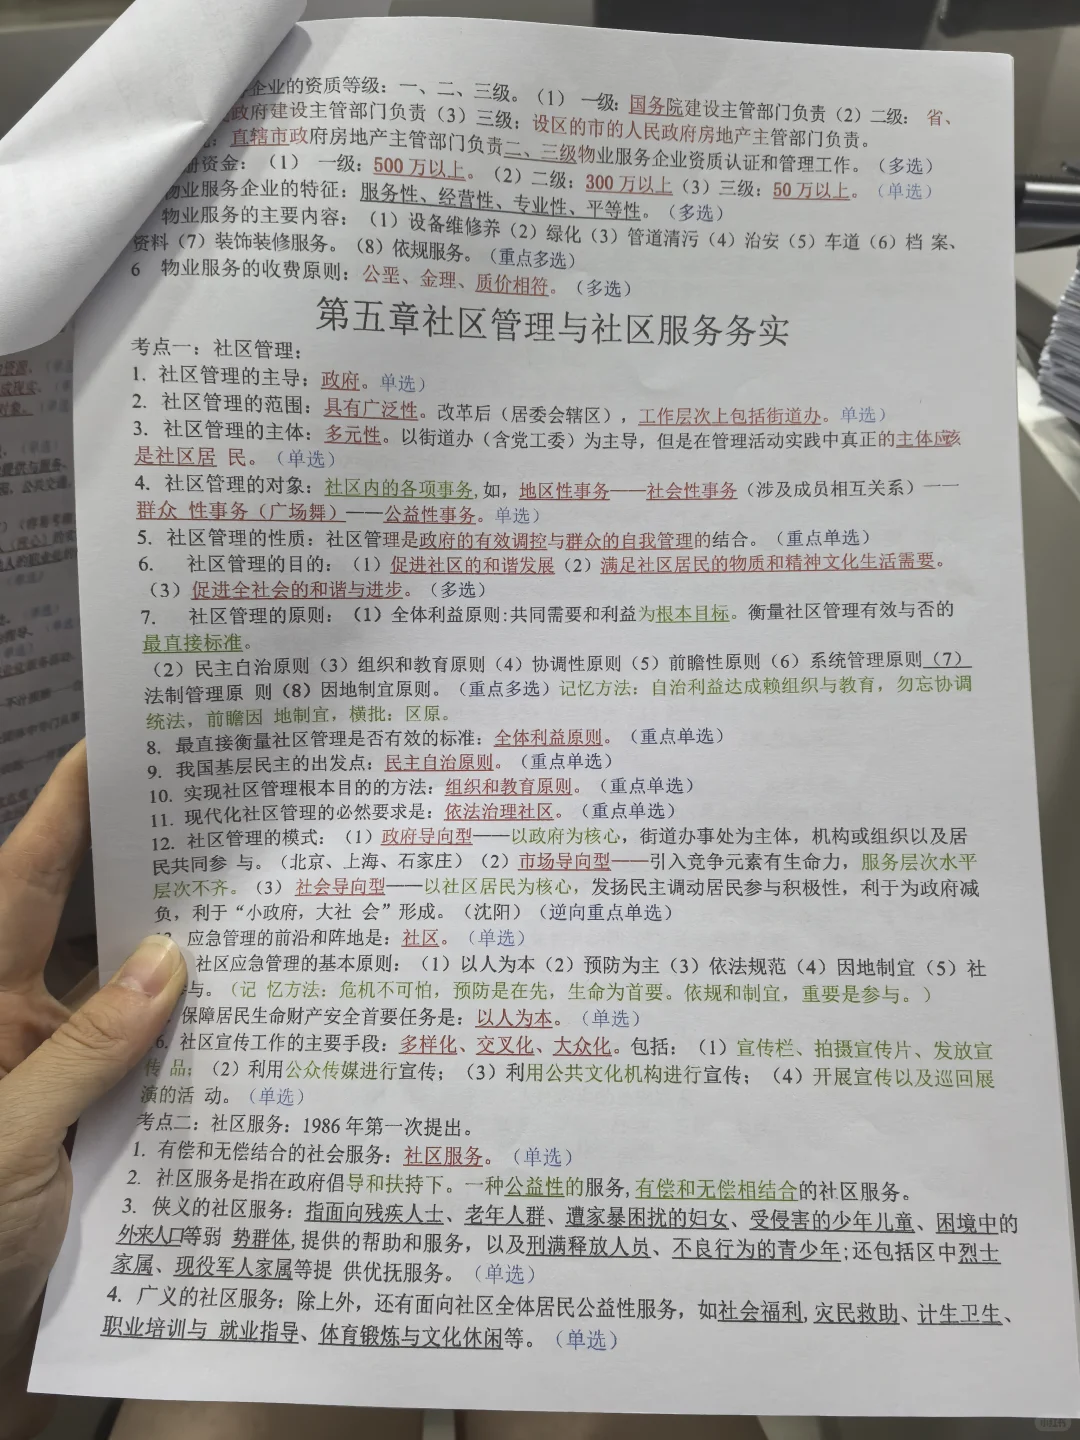 企业的资质等级：一、二、三级。（1） 一级：国务院建设主管部门负责（2）二级： 省、
政府建设主管部门负责（3）三级：设区的市的人民政府房地产主管部门负责。
直辖市政府房地产主管部门负责二、三级物业服务企业资质认证和管理工作。（多选）
册资金：（1） 一级：500 万以上。（2）二级：300 万以上（3）三级：50 万以上。（单选）
物业服务企业的特征：服务性、经营性、专业性、平等性。（多选）
物业服务的主要内容：（1）设备维修养（2）绿化（3）管道清污（4）治安（5）车道（6）档 案、
资料（7）装饰装修服务。（8）依规服务。（重点多选）
6 物业服务的收费原则：公垩、金理、质价相符。（多选）
第五章社区管理与社区服务务实
考点一：社区管理：
1. 社区管理的主导：政府。单选）
2. 社区管理的范围：具有广泛性。改革后（居委会辖区），工作层次上包括街道办。单选）
3. 社区管理的主体：多元性。以街道办（含党工委）为主导，但是在管理活动实践中真正的主体应该
是社区居 民。（单选）
4. 社区管理的对象：社区内的各项事务,如，地区性事务——社会性事务（涉及成员相互关系）——
群众 性事务（广场舞）——公益性事务。单选）
5. 社区管理的性质：社区管理是政府的有效调控与群众的自我管理的结合。（重点单选）
6. 社区管理的目的：（1）促进社区的和谐发展（2）满足社区居民的物质和精神文化生活需要。
（3）促进全社会的和谐与进步。（多选）
7. 社区管理的原则：（1）全体利益原则:共同需要和利益为根本目标。衡量社区管理有效与否的
最直接标准。
（2）民主自治原则（3）组织和教育原则（4）协调性原则（5）前瞻性原则（6）系统管理原则（7）
法制管理原 则（8）因地制宜原则。（重点多选）记忆方法：自治利益达成赖组织与教育，勿忘协调
统法，前瞻因 地制宜，横批：区原。
8. 最直接衡量社区管理是否有效的标准：全体利益原则。（重点单选）
9. 我国基层民主的出发点：民主自治原则。（重点单选）
10. 实现社区管理根本目的的方法：组织和教育原则。（重点单选）
11. 现代化社区管理的必然要求是：依法治理社区。（重点单选）
12. 社区管理的模式：（1）政府导向型——以政府为核心，街道办事处为主体，机构或组织以及居
民共同参 与。（北京、上海、石家庄）（2）市场导向型——引入竞争元素有生命力，服务层次水平
层次不齐。（3） 社会导向型——以社区居民为核心，发扬民主调动居民参与积极性，利于为政府减
负，利于“小政府，大社 会”形成。（沈阳）（逆向重点单选）
应急管理的前沿和阵地是：社区。（单选）
社区应急管理的基本原则：（1）以人为本（2）预防为主（3）依法规范（4）因地制宜（5）社
与。（记 忆方法：危机不可怕，预防是在先，生命为首要。依规和制宜，重要是参与。）
保障居民生命财产安全首要任务是：以人为本。（单选）
6. 社区宣传工作的主要手段：多样化、交叉化、大众化。包括：（1）宣传栏、拍摄宣传片、发放宣
传 品；（2）利用公众传媒进行宣传；（3）利用公共文化机构进行宣传；（4）开展宣传以及巡回展
演的活 动。（单选）
考点二：社区服务：1986 年第一次提出。
1. 有偿和无偿结合的社会服务：社区服务。（单选）
2. 社区服务是指在政府倡导和扶持下。一种公益性的服务,有偿和无偿相结合的社区服务。
3. 侠义的社区服务：指面向残疾人士、老年人群、遭家暴困扰的妇女、受侵害的少年儿童、困境中的
外来人口等弱 势群体,提供的帮助和服务，以及刑满释放人员、不良行为的青少年;还包括区中烈士
家属、现役军人家属等提 供优抚服务。（单选）
4. 广义的社区服务：除上外，还有面向社区全体居民公益性服务，如社会福利,灾民救助、计生卫生、
职业培训与 就业指导、体育锻炼与文化休闲等。（单选）